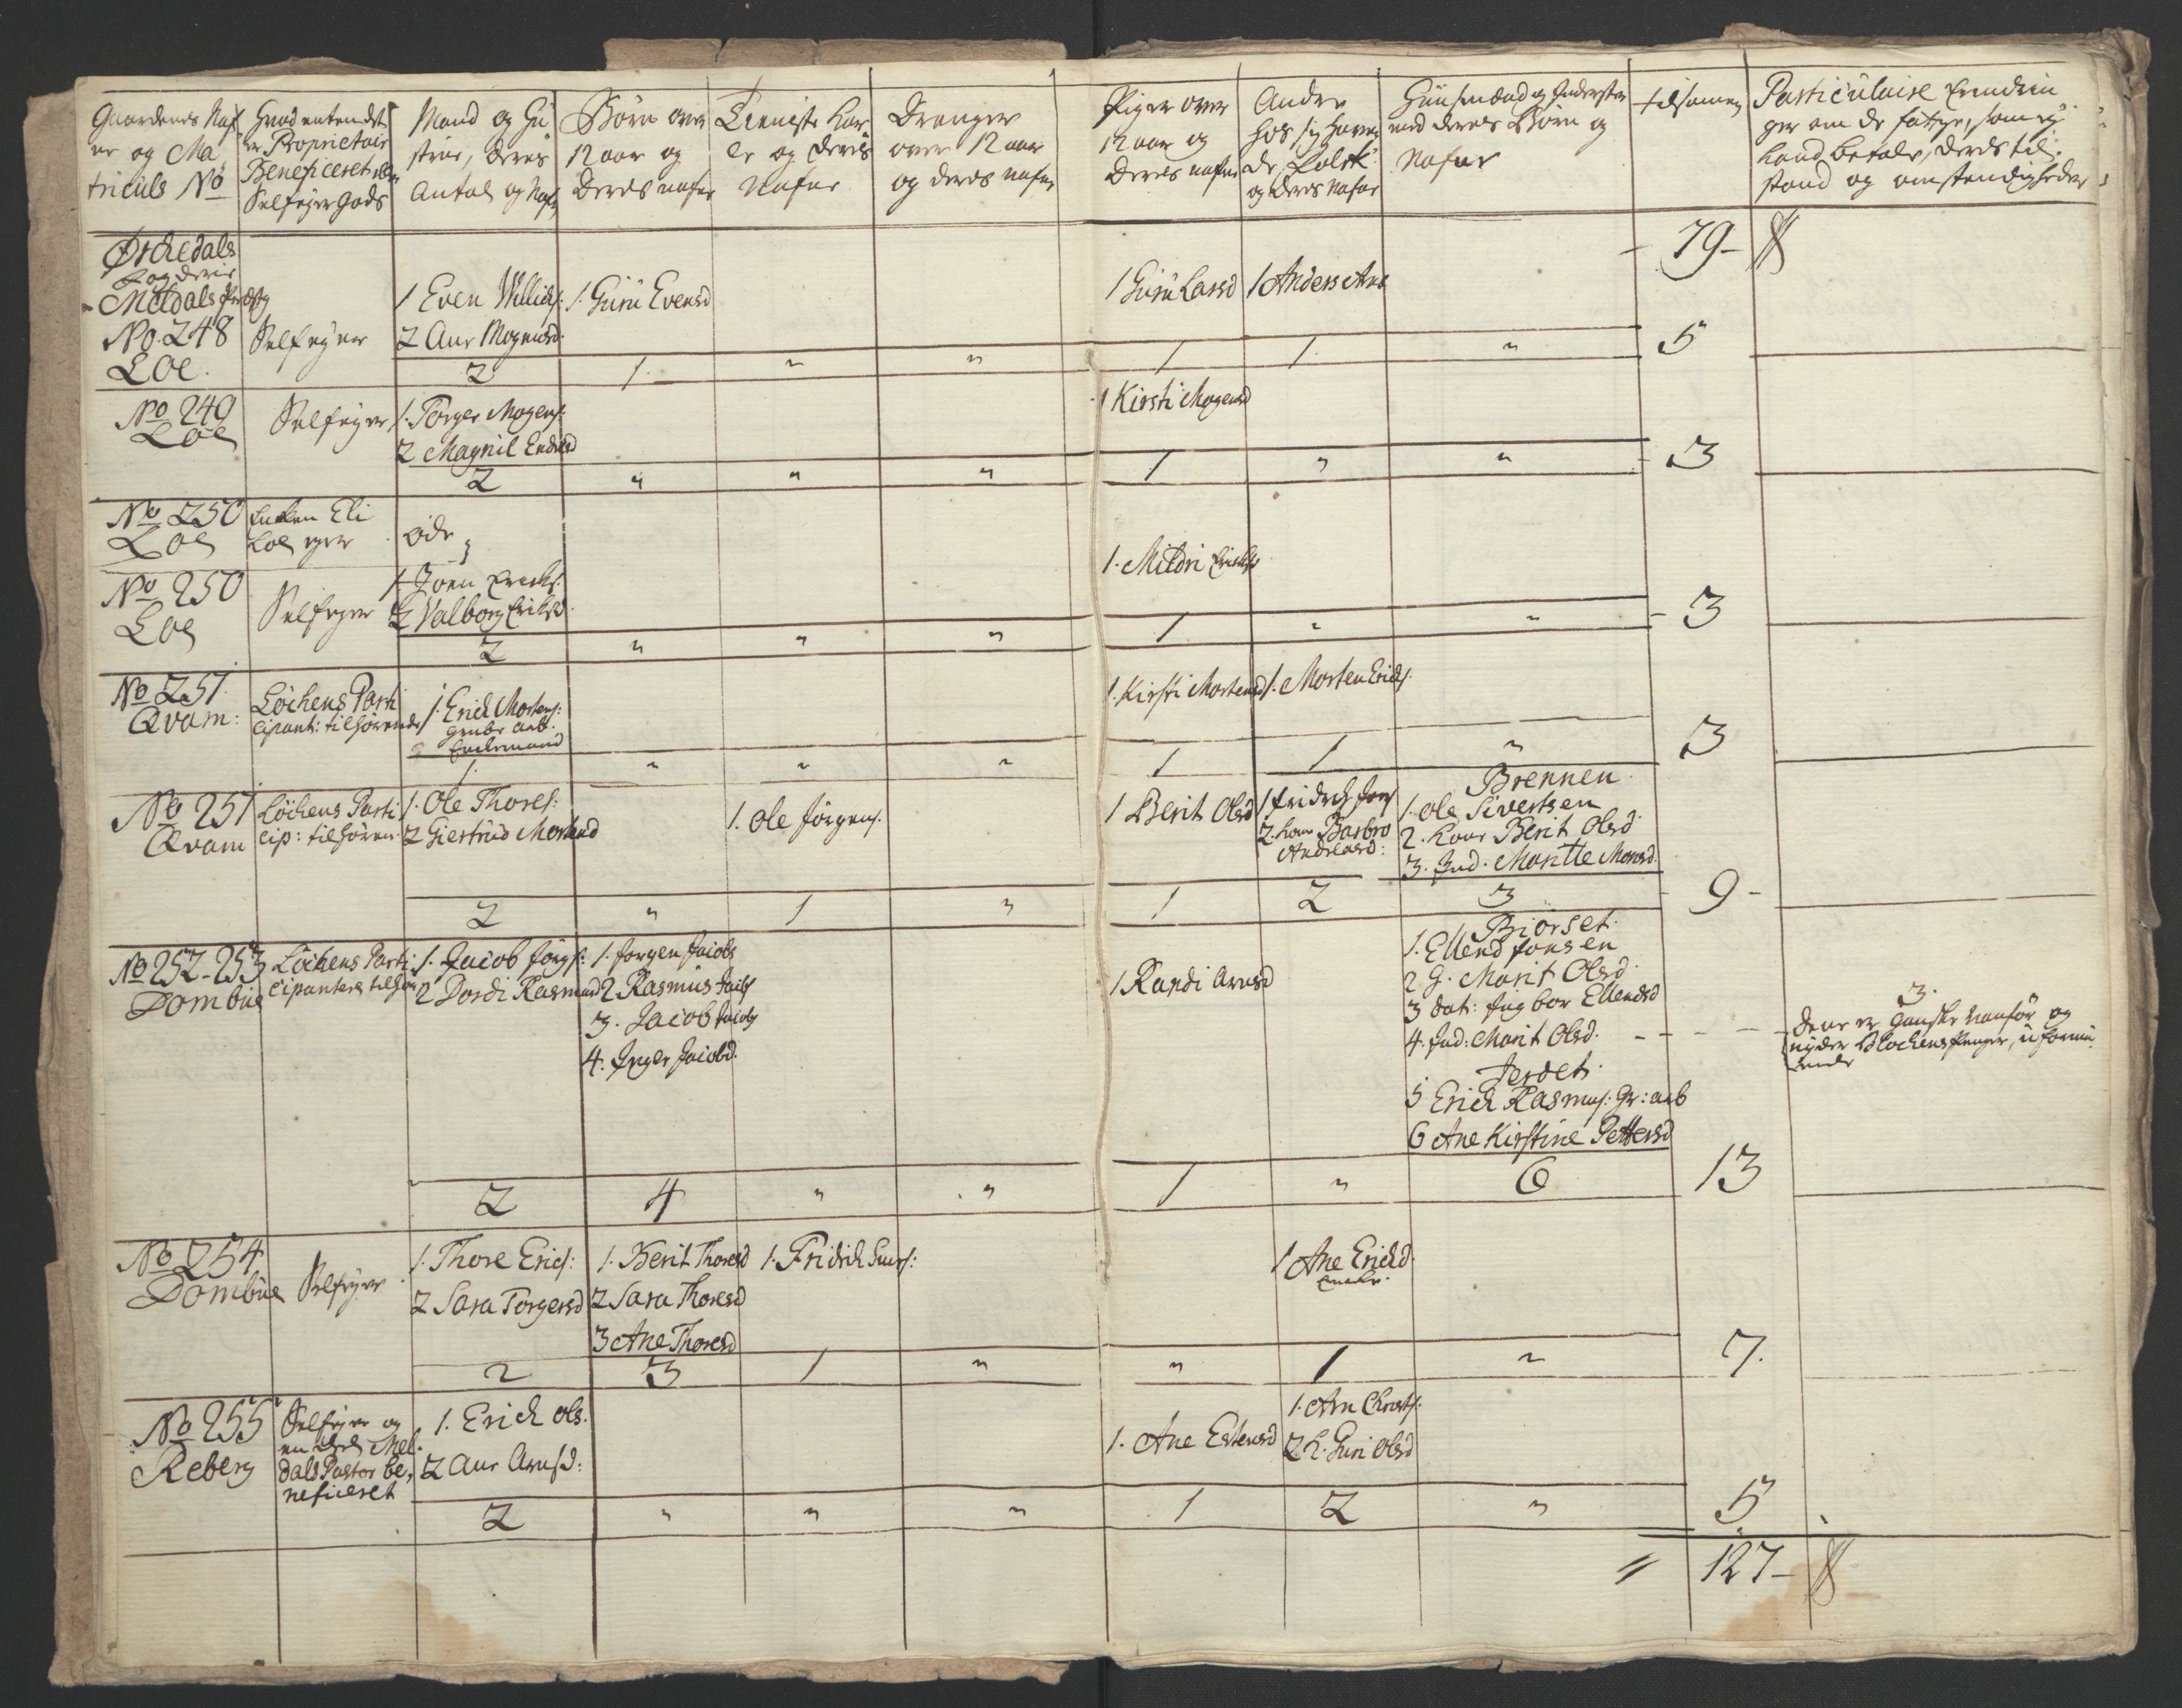 Gaardenes Naf
ne og Ma
triculs No
Hvad enten det
er Proprietair
Beneficeret eller
Selfejer Gods
Mand og Hu
strue, deres
Antal og Nafne
Børn over
12 aar og
deres nafne
Tieniste Kar
le og deres
Nafne
Drenger
over 12 aar
og deres nafne
Piger over
12 aar og
deres nafne
Andre
hos sig haven
de Folck
og deres Nafne
Huusmænd og Inderster
med deres Børn og
Nafne
tilsamen
Particulaire Erindrin
ger om de fattige, som ej
kand betale, deres til
stand og omstendigheder
79
Ørchedals
Fogderie
Meldals Præstg
No. 248
Loe.
Selfejer
1 Even Willichs:
2 Ane Mogensd.
1. Guru Evensd
1 Guru Larsd
1 Anders Arn
2
1.
"
"
1
1.
"
5
No 249
Loe
Selfejer
1. Torger Mogens:
2 Magnil Endresd
1 Kirsti Mogensd
2
"
"
"
1
"
"
3
No 250
Loe
Enken Eli
Loe ejer
øde
No 250
Loe
Selfejer
1. Joen Erichs:
2 Valborg Eriksd.
1. Mildri Erichsd
2
"
"
"
1
"
"
3
No 251.
Qvam:
Löchens Parti
cipant: tilhørende
1. Erich Mortens:
Grube arb.
Enckemand
1. Kirsti Mortensd
1. Morten Erichs.
1.
"
"
"
1
1
"
3
No 251
Qvam
Löchens Parti
cip: tilhøren
1. Ole Thores:
2 Giertrud Mortensd
1. Ole Jörgens.
1 Berit Olsd
1 Fridrich Jons
2. Kone Barbro
Andreasd:
Brennen
1. Ole Sivertsen
2. Kone Berit Olsd
3. Ind. Maritte Monsd.
2
"
1
"
1
2
3
9
No 252-253
Dombue
Löchens Parti
cipantere tilhør
1. Jacob Jörgs:
2 Dordi Rasmusd
1. Jorgen Jacobs
2 Rasmus Jacobs
3. Jacob Jacobs
4. Inger Jacobd.
1 Randi Arnesd
Biörset.
1. Ellend Jonsen
2 H. Marit Olsd.
3 Dat: Ingbor Ellendsd
4. Ind: Marit Olsd.
Jerdet.
5 Erich Rasmus: Gr: arb
6 Ane Kirstine Pettersd
3.
denne er gandske vanför og
nyder Blochens Penger, uformu
ende
2
4
"
"
1
"
6
13
No 254
Dombue
Selfejer
1. Thore Erics:
2 Sara Torgersd
1. Berit Thoresd
2 Sara Thoresd
3 Ane Thoresd
1. Fridrich
1 Ane Erichd.
Encke.
2
3
1
"
"
1
"
7.
No 255
Reberg
Selfejer og
en deel Mel
dals Pastor be
neficeret
1. Erich Ols.
2 Ane Arnsd:
1. Ane Estensd
1. Arn Christs:
2 K. Guri Olsd
2
"
"
"
1
2
"
5
127